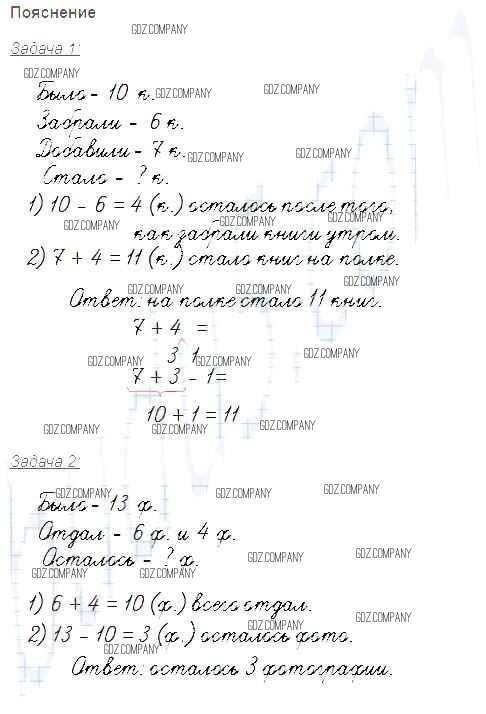 Пояснение
GDZ.COMPANY
Задача 1:
GDZ.COMPANY
Было - 10 к.
GDZ.COMPANY
GDZ.COMPANY
Забрали - 6 к.
Добавили - 7 к.
GDZ.COMPANY
GDZ.COMPANY
Стало - ? к.
1) 10 - 6 = 4 (к.) осталось после того,
GDZ.COMPANY
GDZ.COMPANY
GDZ.COMPANY
как забрали книги утром.
2) 7 + 4 = 11 (к.) стало книг на полке.
GDZ.COMPANY
GDZ.COMPANY
GDZ.COMPANY
GDZ.COMPANY
Ответ: на полке стало 11 книг.
7 + 4 =
3 1
GDZ.COMPANY
GDZ.COMPANY
GDZ.COMPANY
7 + 3 - 1=
10 + 1 = 11
GDZ.COMPANY
GDZ.COMPANY
GDZ.COMPANY
Задача 2:
GDZ.COMPANY
GDZ.COMPANY
GDZ.COMPANY
Было - 13 ф.
Отдал - 6 ф. и 4 ф.
Осталось - ? ф.
GDZ.COMPANY
GDZ.COMPANY
GDZ.COMPANY
GDZ.COMPANY
1) 6 + 4 = 10 (ф.) всего отдал.
GDZ.COMPANY
GDZ.COMPANY
2) 13 - 10 = 3 (ф.) осталось фото.
GDZ.COMPANY
Ответ: осталось 3 фотографии.